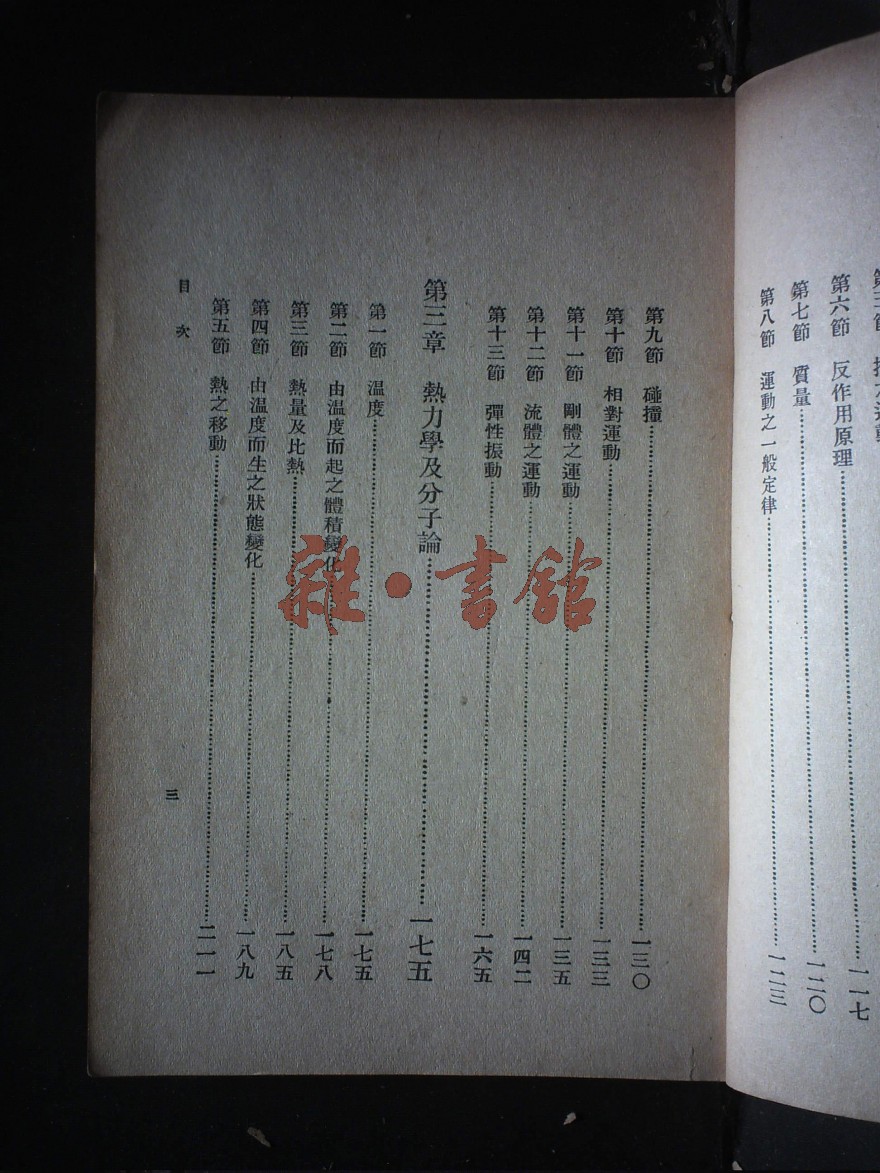 第六節　反作用原理……一一七
第七節　質量……一二〇
第八節　運動之一般定律……一二三
第九節　碰撞……一三〇
第十節　相對運動……一三三
第十一節　剛體之運動……一三五
第十二節　流體之運動……一四二
第十三節　彈性振動……一六五
第三章　熱力學及分子論……一七五
第一節　溫度……一七五
第二節　由溫度而起之體積變化……一七八
第三節　熱量及比熱……一八五
第四節　由溫度而生之狀態變化……一八九
第五節　熱之移動……二一一
目次
三
雜·書館